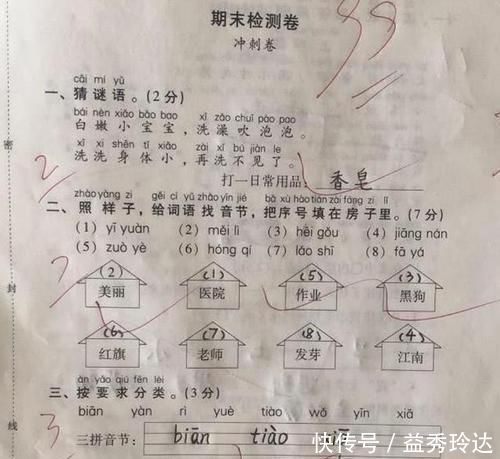 期末检测卷
99
冲刺卷
cāi mí yǔ
一、猜谜语。(2分)
bái nèn xiǎo bǎo bao xǐ zǎo chuī pào pao
白嫩小宝宝,洗澡吹泡泡。
xǐ xǐ shēn tǐ xiǎo zài xǐ bú jiàn le
洗洗身体小,再洗不见了。
2
打一日常用品: 香皂
zhào yàng zi gěi cí yǔ zhǎo yīn jié bǎ xù hào tián zài fáng zi lǐ
二、照样子,给词语找音节,把序号填在房子里。(7分)
(1) yī yuàn (2) měi lì (3) hēi gǒu (4) jiāng nán
(5) zuò yè (6) hóng qí (7) lǎo shī (8) fā yá
7
(2) (1) (5) (3)
美丽 医院 作业 黑狗
(6) (7) (8) (4)
红旗 老师 发芽 江南
àn yāo qiú fēn lèi
三、按要求分类。(3分)
3
biān yàn rì yuè tiào wǒ yīn xiā
三拼音节: biān tiào xiā
密
封
线
快传号 / 益秀玲达